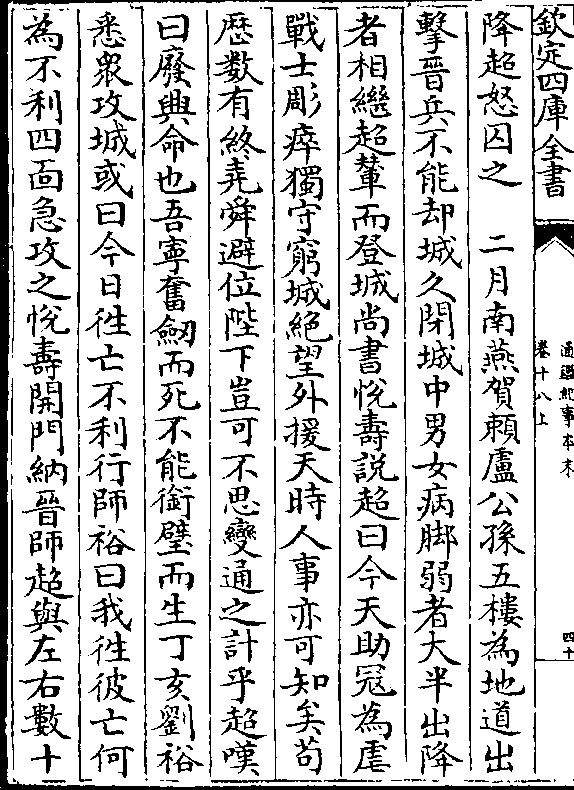 欽定四庫全書
通鑑紀事本末
卷十八上
四十
降超怒囚之　二月南燕賀賴盧公孫五樓為地道出
擊晉兵不能却城久閉城中男女病脚弱者大半出降
者相繼超輦而登城尚書悅壽説超曰今天助冦為虐
戰士彫瘁獨守窮城絶望外援天時人事亦可知矣苟
歴數有終堯舜避位陛下豈可不思變通之計乎超嘆
曰廢興命也吾寧奮劒而死不能銜璧而生丁亥劉裕
悉衆攻城或曰今日徃亡不利行師裕曰我徃彼亡何
為不利四面急攻之悅壽開門納晉師超與左右數十